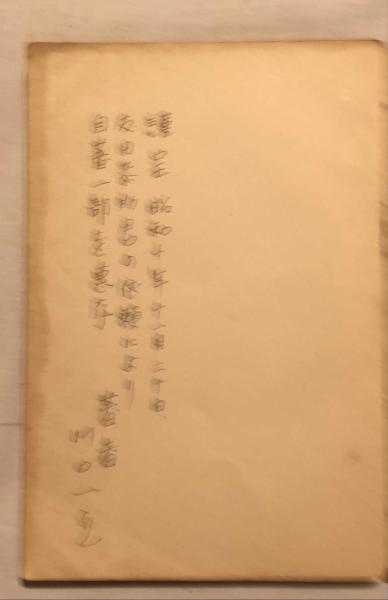 謹呈 昭和十年十一月二十日
友田泰助君の依頼により
自著一部を恵存
著者
川口一